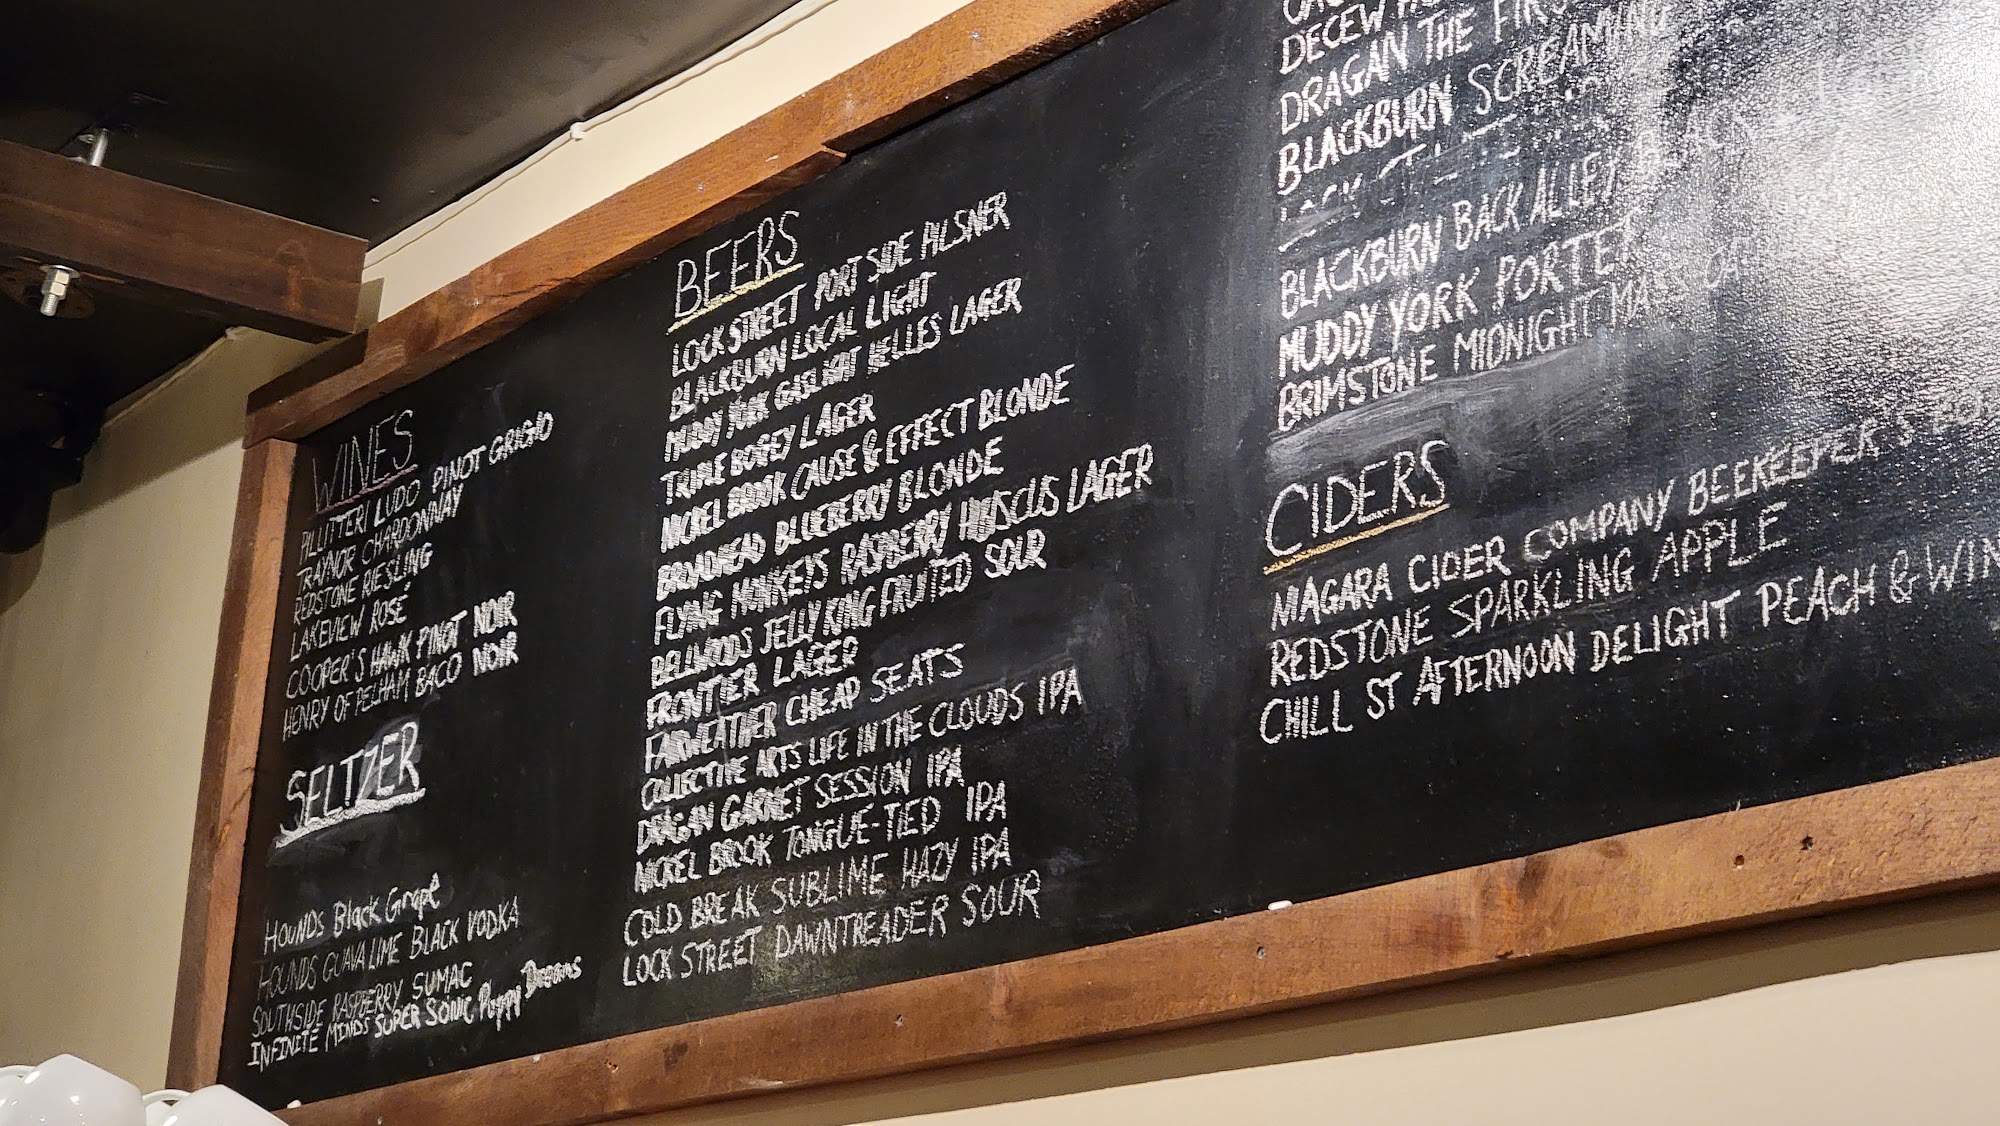 WINES
PILLITTERI LUDO PINOT GRIGIO
TRAYNOR CHARDONNAY
REDSTONE RIESLING
LAKEVIEW ROSÉ
COOPER'S HAWK PINOT NOIR
HENRY OF PELHAM BACO NOIR
SELTZER
HOUNDS Black Grape
HOUNDS GUAVA LIME BLACK VODKA
SOUTHSIDE RASPBERRY SUMAC
INFINITE MINDS SUPER SONIC Puppy Dreams
BEERS
LOCK STREET PORT SIDE PILSNER
BLACKBURN LOCAL LIGHT
MUDDY YORK GASLIGHT HELLES LAGER
TRIPLE BOGEY LAGER
NICKEL BROOK CAUSE & EFFECT BLONDE
BROADHEAD BLUEBERRY BLONDE
FLYING MONKEYS RASPBERRY HIBISCUS LAGER
BELLWOODS JELLY KING FRUITED SOUR
FRONTIER LAGER
FAIRWEATHER CHEAP SEATS
COLLECTIVE ARTS LIFE IN THE CLOUDS IPA
DRAGAN GARNET SESSION IPA
NICKEL BROOK TONGUE-TIED IPA
COLD BREAK SUBLIME HAZY IPA
LOCK STREET DAWNTREADER SOUR
DECEW
DRAGAN THE
BLACKBURN SCREAMING
BLACKBURN BACK ALLEY BLACK
MUDDY YORK PORTER
BRIMSTONE MIDNIGHT
CIDERS
NIAGARA CIDER COMPANY BEEKEEPER'S
REDSTONE SPARKLING APPLE
CHILL ST AFTERNOON DELIGHT PEACH &